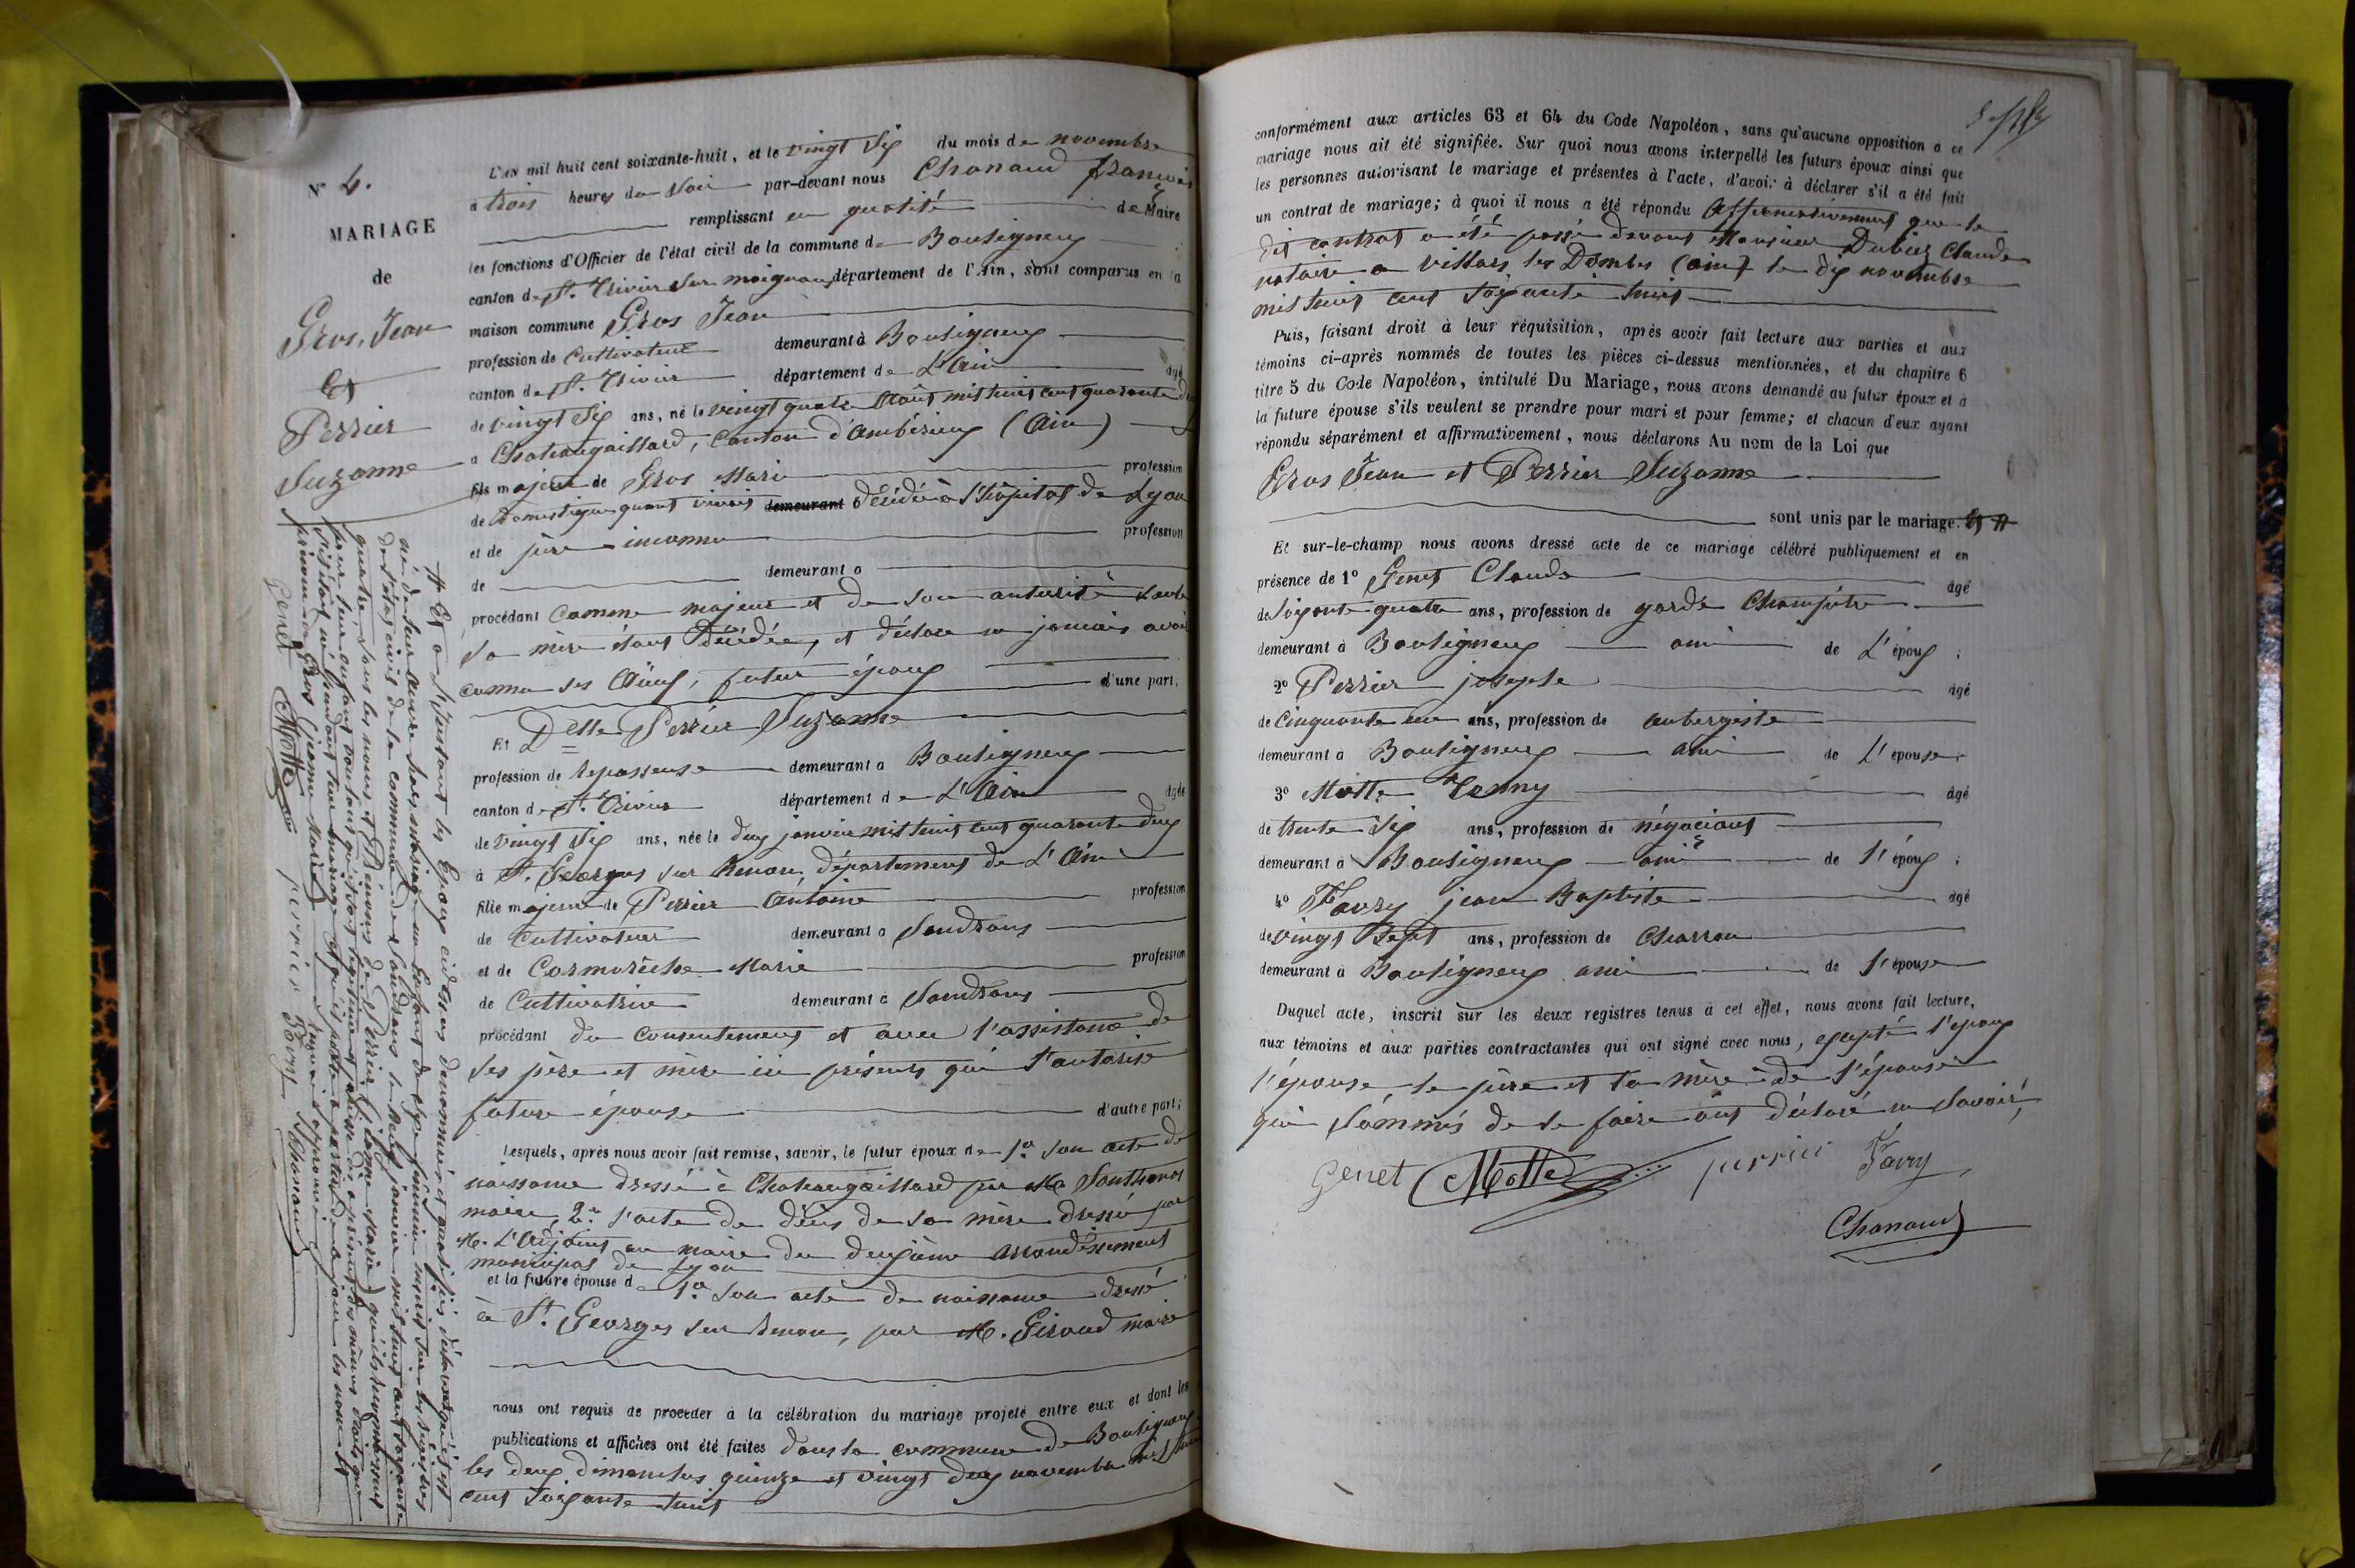 N° 4.
MARIAGE
de
Gros, Jean
Et
Perrier
Suzanne
L'AN mil huit cent soixante-huit, et le vingt six du mois de novembre
à trois heures du soir par-devant nous Chanaud françois
remplissant en qualité de Maire
les fonctions d'Officier de l'état civil de la commune de Bouligneux
canton de St. Trivier sur moignans, département de l'Ain, sont comparus en la
maison commune Gros Jean
profession de Cultivateur demeurant à Bouligneux
canton de St. Trivier département de L'Ain âgé
de vingt six ans, né le vingt quatre Août mil huit cent quarante deux
a Chateaugaillard, canton d'Ambérieux (Ain)
fils majeur de Gros Marie profession
de domestique quand vivait demeurant à décédée à l'hôpital de Lyon
et de père inconnu profession
de demeurant a
procédant Comme majeur et de son autorité seule
sa mère étant Décédée, et déclare n'a jamais avoir
connu ses Aïeux, futur époux
d'une part;
Et Delle Perrier Suzanne
profession de repasseuse demeurant a Bouligneux
canton de St. Trivier département de L'Ain âgée
de vingt six ans, née le deux janvier mil huit cent quarante deux
à St. Georges sur Renon, département de L'Ain
fille majeure de Perrier Antoine profession
de Cultivateur demeurant a Sandrans
et de Cormorèche Marie profession
de Cultivatrice demeurant à Sandrans
procédant du consentement et avec l'assistance de
ses père et mère ici présents qui l'autorise
future épouse d'autre part;
Lesquels, après nous avoir fait remise, savoir, le futur époux de 1° son acte de
naissance dressé à Chateaugaillard par Mr Southonax
maire, 2° l'acte de décès de sa mère dressé par
M. L'Adjoint au maire du deuxième arrondissement
municipal de Lyon
et la future épouse de 1° son acte de naissance dressé
à St. Georges sur Renon, par M. Giraud maire
nous ont requis de procéder à la célébration du mariage projeté entre eux et dont les
publications et affiches ont été faites dans la commune de Bouligneux
les deux dimanches quinze et vingt deux novembre mil huit
cent soixante huit
# Et a l'instant les Epoux cidessus dénommés et qualifiés, déclarent qu'il est
né de leur œuvre hors mariage un Enfant de sexe féminin inscrit sur les registres
de l'état civil de la commune de Sandrans le deux janvier mil huit cent soixante
quatre, sous les noms et Prénoms de Perrier (jeanne Marie) qu'ils reconnaissent
pour leur enfant voulant qu'il soit légitimé et jouisse dès à présent des mêmes droits que
s'il était né pendant leur mariage, et qu'il porte à partir de ce jour les nom et
prénom de Gros jeanne Marie
Genet Motte perrier Favry Chanaud
conformément aux articles 63 et 64 du Code Napoléon, sans qu'aucune opposition à ce
mariage nous ait été signifiée. Sur quoi nous avons interpellé les futurs époux ainsi que
les personnes autorisant le mariage et présentes à l'acte, d'avoir à déclarer s'il a été fait
un contrat de mariage; à quoi il nous a été répondu Affirmativement que le
dit contrat a été passé devant Monsieur Dubiez Claude
notaire a Villars les Dombes (ain) le dix novembre
mil huit cent soixante huit
Puis, faisant droit à leur réquisition, après avoir fait lecture aux parties et aux
témoins ci-après nommés de toutes les pièces ci-dessus mentionnées, et du chapitre 6
titre 5 du Code Napoléon, intitulé Du Mariage, nous avons demandé au futur époux et à
la future épouse s'ils veulent se prendre pour mari et pour femme; et chacun d'eux ayant
répondu séparément et affirmativement, nous déclarons Au nom de la Loi que
Gros Jean et Perrier Suzanne
sont unis par le mariage. Et #
Et sur-le-champ nous avons dressé acte de ce mariage célébré publiquement et en
présence de 1° Genet Claude âgé
de soixante quatre ans, profession de garde Champêtre
demeurant à Bouligneux ami de L'époux;
2° Perrier joseph âgé
de cinquante un ans, profession de aubergiste
demeurant à Bouligneux ami de L'épouse;
3° Motte Jenny âgé
de trente six ans, profession de négociant
demeurant à Bouligneux ami de l'époux;
4° Favry jean Baptiste âgé
de vingt sept ans, profession de Charron
demeurant à Bouligneux ami de l'épouse
Duquel acte, inscrit sur les deux registres tenus à cet effet, nous avons fait lecture,
aux témoins et aux parties contractantes qui ont signé avec nous, excepté l'époux
l'épouse, le père et la mère de l'épouse
qui sommés de le faire ont déclaré ne savoir,
Genet Motte perrier Favry
Chanaud